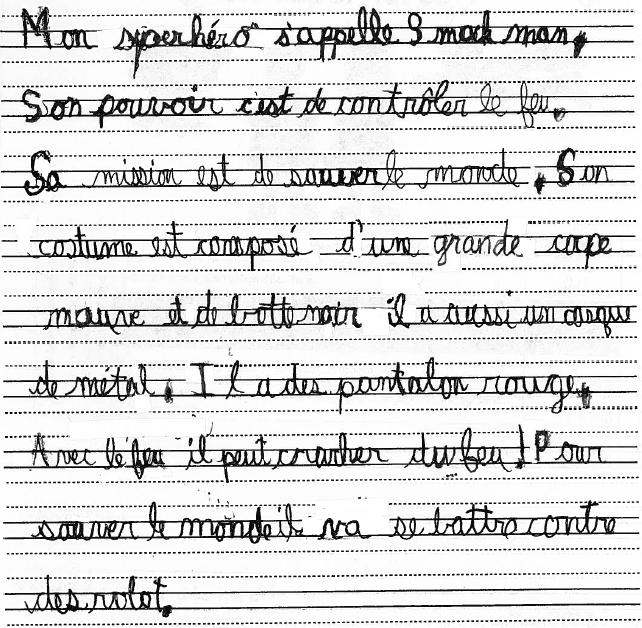 Mon sperhéro s'appelle Smack man,
Son pouvoir c'est de contrôler le feu.
Sa mission est de sauver le monde. Son
costume est composé d'une grande cape
mauve et de botte noir il a aussi un casque
de métal. Il a des pantalon rouge.
Avec le feu il peut cracher du feu! Pour
sauver le monde il va se battre contre
des robot.